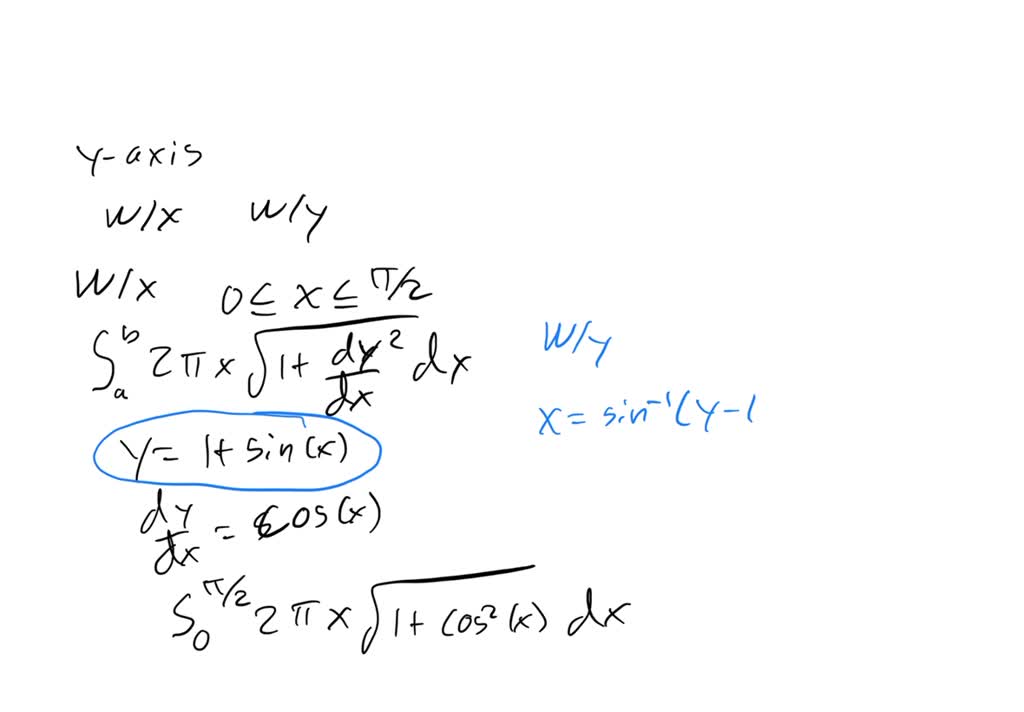 y-axis
W/x W/y
W/x 0 ≤ x ≤ π/2
∫_a^b 2πx √(1+ dy/dx ²) dx
y = 1+ sin(x)
dy/dx = cos(x)
∫_0^π/2 2πx √(1+ cos²(x)) dx
W/y
x = sin⁻¹(y-1